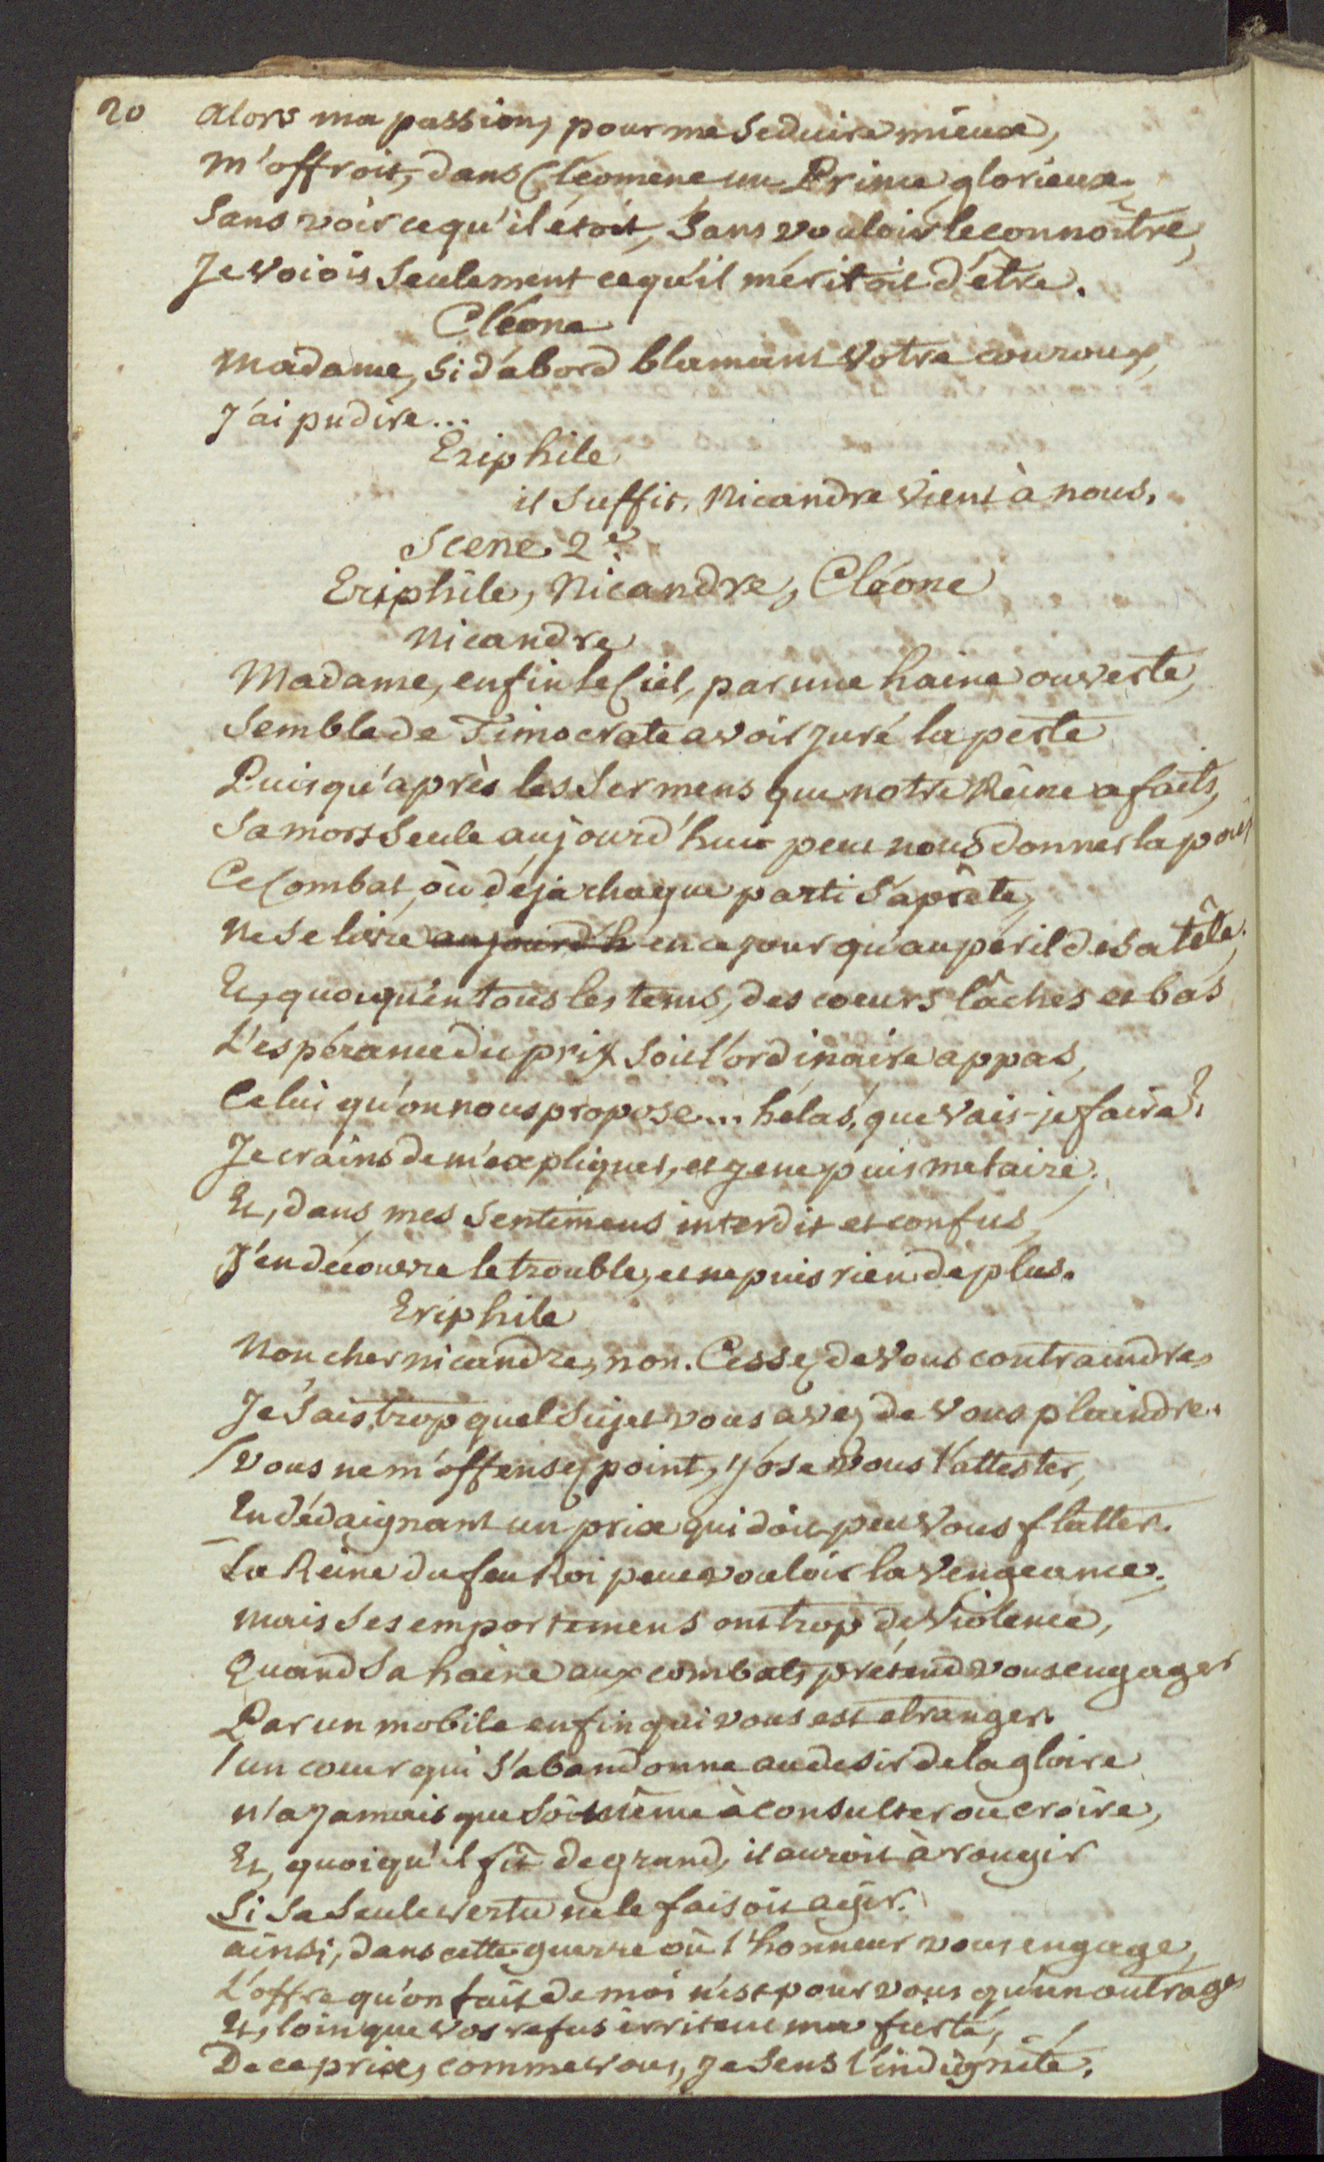 20
alors ma passion, pour me seduire mieux,
M'offroit, dans Cléomene un Prince glorieux.
Sans voir ce qu'il étoit, Sans vouloir le connoître,
Je voiois Seulement ce qu'il méritoit d'être.
Cléone
Madame, Si d'abord blamant Votre couroux,
J'ai pu dire...
Eriphile
il Suffit. Nicandre Vient à nous.
Scene 2.e
Eriphile, Nicandre, Cléone
Nicandre
Madame, enfin le Ciel, par une haine ouverte,
Semble de Timocrate avoir juré la perte
Puisqu'après les Sermens que notre Reine a faits,
Sa mort Seule aujourd'hui peut nous donner la paix
Ce Combat, où déja chaque parti S'aprête,
Ne Se livre aujourd'h en ce jour qu'au péril de Sa tête.
Et, quoiqu'en tous les tems, des coeurs lâches et bas
L'espérance du prix Soit l'ordinaire appas,
Celui qu'on nous propose... hélas, que vais-je faire?
Je crains de m'expliquer, et je ne puis me taire;
Et, dans mes Sentimens interdit et confus,
J'en découvre le trouble, et ne puis rien de plus.
Eriphile
Non cher nicandre, non. Cessez de Vous contraindre,
Je Sais trop quel Sujet vous avez de vous plaindre.
/ Vous ne m'offensez point, j'ose vous l'attester,
En dédaignant un prix qui doit peu Vous flatter.
La Reine du feu Roi peut vouloir la Vengeance;
Mais Ses emportemens ont trop de Violence,
Quand Sa haine aux combats prétend vous engager
Par un mobile enfin qui vous est etranger.
/ un coeur qui S'abandonne au desir de la gloire
n'a jamais que Soi même à consulter ou croire,
Et, quoiqu'il fit de grand, il auroit à rougir
Si Sa Seule vertu ne le faisoit agir.
ainsi, dans cette guerre où l'honneur vous engage,
L'offre qu'on fait de moi n'est pour vous qu'un outrage
Et, loin que vos refus irritent ma fierté,
De ce prix, comme vous, je Sens l'indignité.